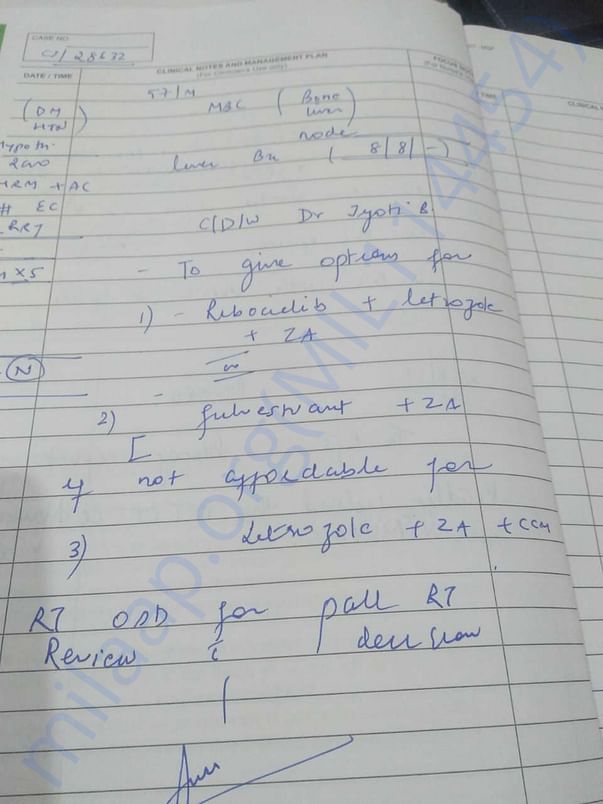 CASE NO
CJ/28632
DATE / TIME
CLINICAL NOTES AND MANAGEMENT PLAN
(For Clinicians Use only)
57/M
(DM
HTN)
MBC (Bone
liver
node
Hypoth.
2000
liver Bx ( 8/8/-)
MRM + AC
# EC
RRT
x5
C/D/W Dr Jyoti B.
- To give options for
1) - Ribociclib + letrozole
+ ZA
or
N
2) fulvestrant + ZA
[
If not affordable for
3) Letrozole + ZA + CCM
RT OPD for pall RT
Review c̄ decision
milaap.org(MIL1144547